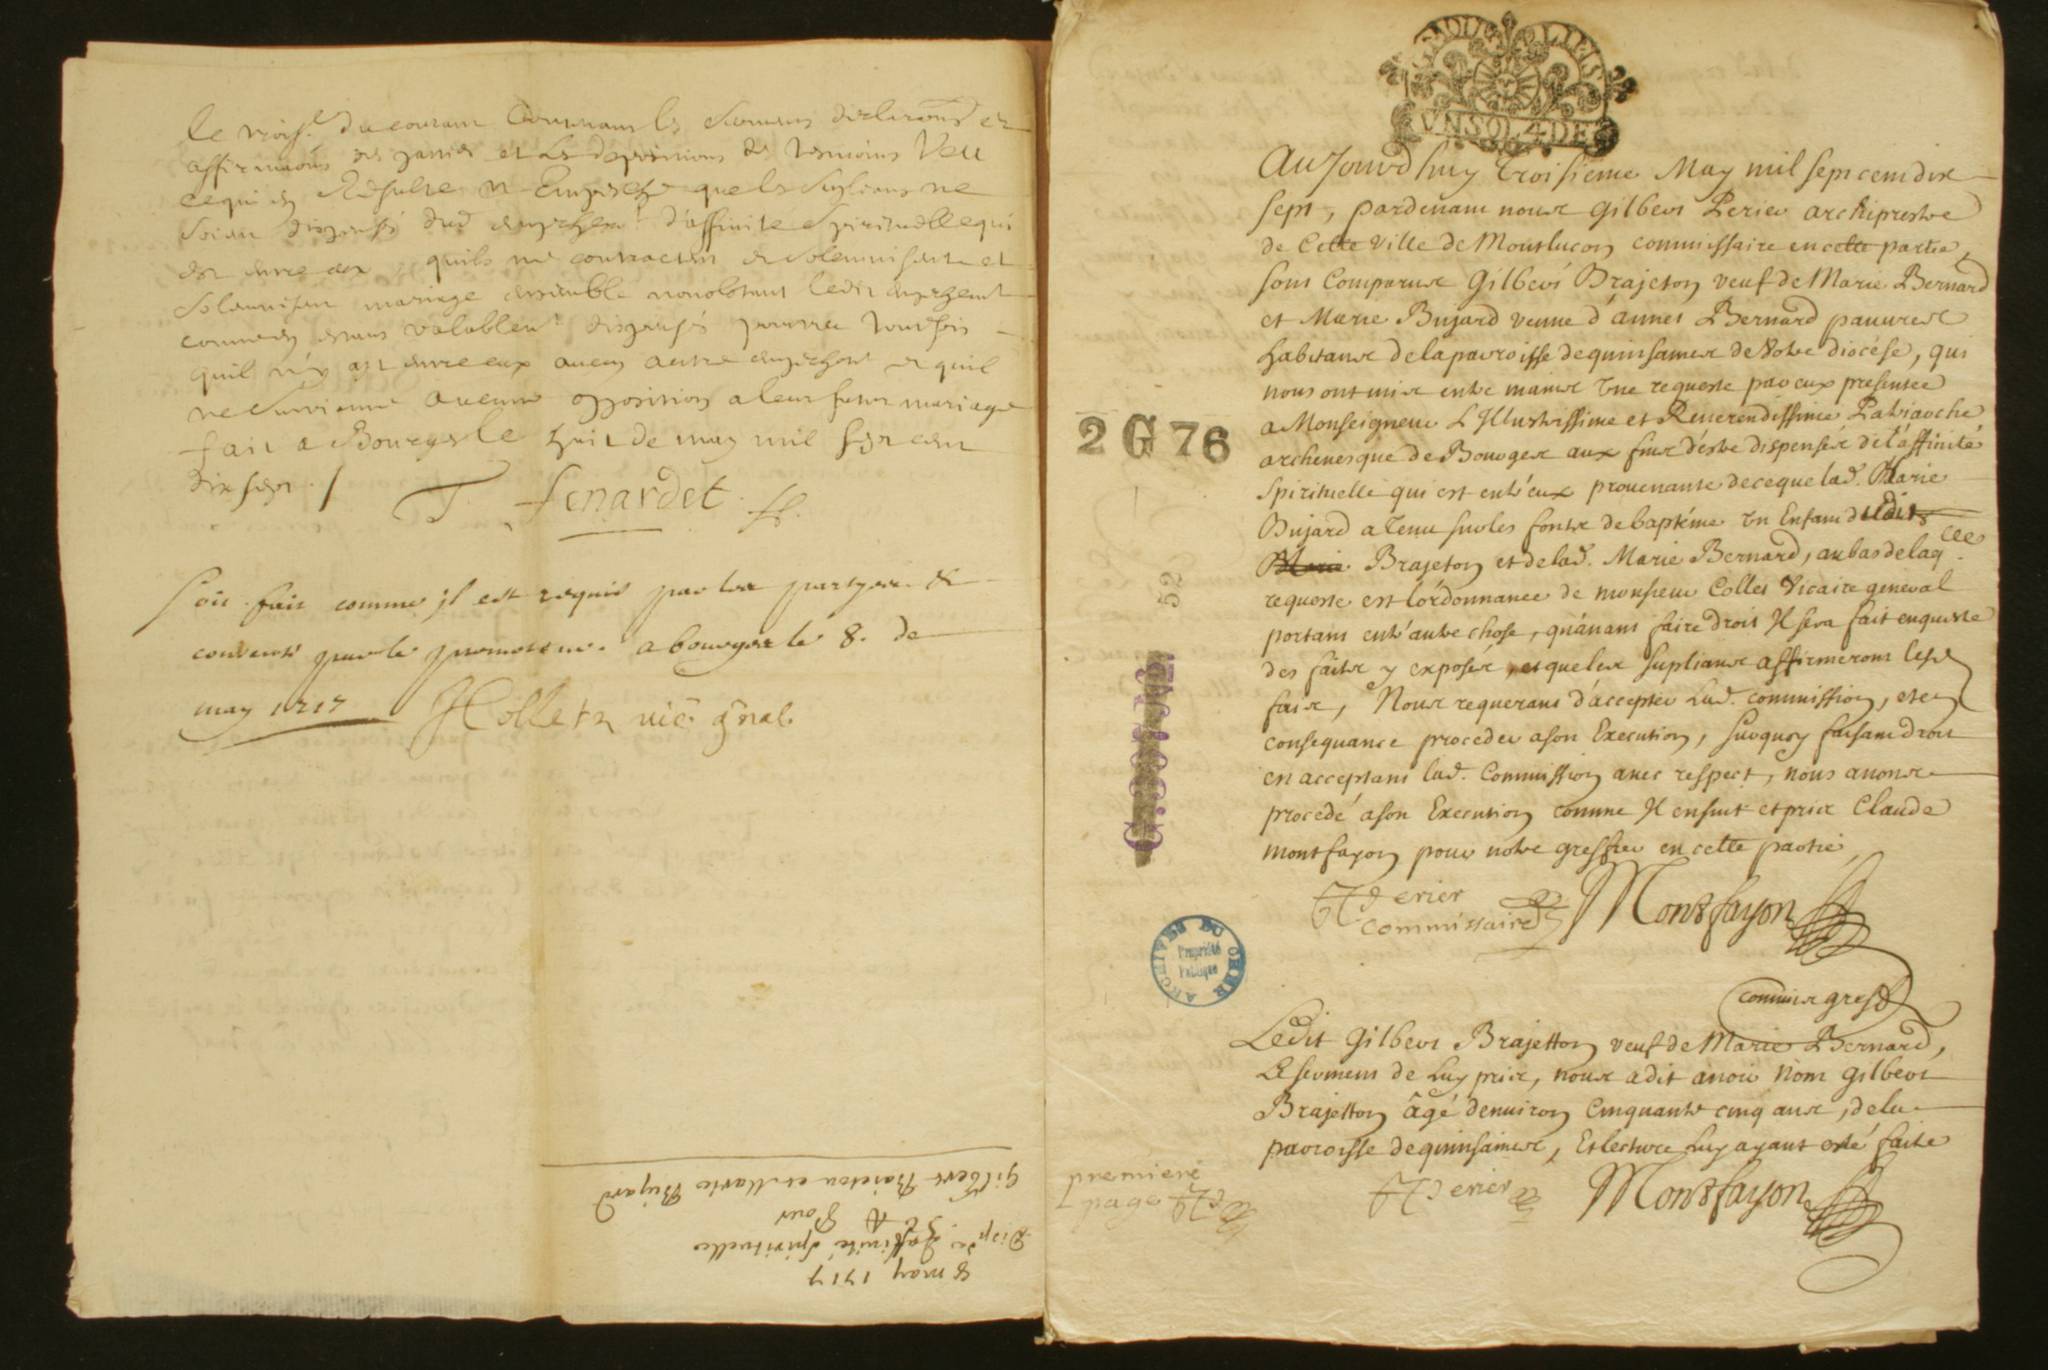 le trois.e du courant Contenant les sermens declara͠ons et
affirmaons des parties et les depositions des tesmoins Veu
ce qui en Resulte n'Empesche que les suplians ne
soient dispensés dud empeschem.t d'affinité spirituelle qui
est entre eux quils ne contractent et solemnisent et
solennisent mariage ensemble nonobstant ledit empeschemt
comme en estans valablem.t dispensés pourveu toutesfois
quil n'y ait entre eux aucun autre empeschemt et quil
ne survienne aucune opposition a leur futur mariage
fait a Bourges le huit de may mil sept cent
dix sept /
T. fenardet
soit fait comme il est requis par les partyes &
consenti par le promoteur. a bourges le 8. de
may 1717 Colletz vic. g͠nal
Gilbert Braieton et Marie Bujard
Pour
Disp de L'affinité Spirituelle
8 may 1717
GEN MOULINS
UN SOL 4 DE
2 G 76
52
ARCHIVES DU CHER
Propriété
Publique
AuJourd'huy troisieme May mil sept cent dix
sept, pardevant nous Gilbert Perier archiprestre
de Cette ville de Montlucon commissaire en cette partie,
sont Comparus Gilbert Brajeton veuf de Marie Bernard
et Marie Bujard veuve d'annet Bernard pauvres
habitans de la parroisse de quinsaines de Votre diocése, qui
nous ont mis entre mains une requeste par eux presentée
a Monseigneur L'Illustrissime et Reverendissime Patriarche
archevesque de Bourges aux fins d'estre dispensés de l'affinité
spirituelle qui est entr'eux provenante de ce que lad. Marie
Bujard a tenu sur les fonts de baptéme un Enfant dudit
Brajeton et de lad. Marie Bernard, au bas de laq.lle
requeste est l'ordonnance de monsieur Collet Vicaire general
portant entr'autre chose, qu'avant faire droit Il sera fait enqueste
des faits y exposés, et que les suplians affirmeront lesd
faits, Nous requerans d'accepter lad. commission, et en
consequance proceder a son Execution, surquoy faisant droit
en acceptant lad. Commission avec respect, nous avons
procedé a son Execution comme Il ensuit et pris Claude
montfayon pour notre greffier en cette partie
Perier
commissaire
Montfayon
commis greff
Ledit Gilbert Brajetton veuf de Marie Bernard,
Le serment de luy pris, nous a dit avoir nom Gilbert
Brajetton âgé d'environ Cinquante cinq ans, de la
parroisse de quinsaines, Et lecture luy ayant esté faite
premiere
page
Perier
Montfayon